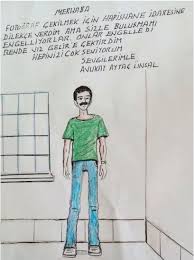 MERHABA
FOTOĞRAF ÇEKİLMEK İÇİN HAPİSHANE İDARESİNE
DİLEKÇE VERDİM AMA SİZLE BULUŞMAMI
ENGELLİYORLAR. ONLAR ENGELLEDİ
BENDE VİZ GELİR'E ÇEKTİRDİM
HEPİNİZİ ÇOK SEVİYORUM
SEVGİLERİMLE
AVUKAT AYTAÇ ÜNSAL